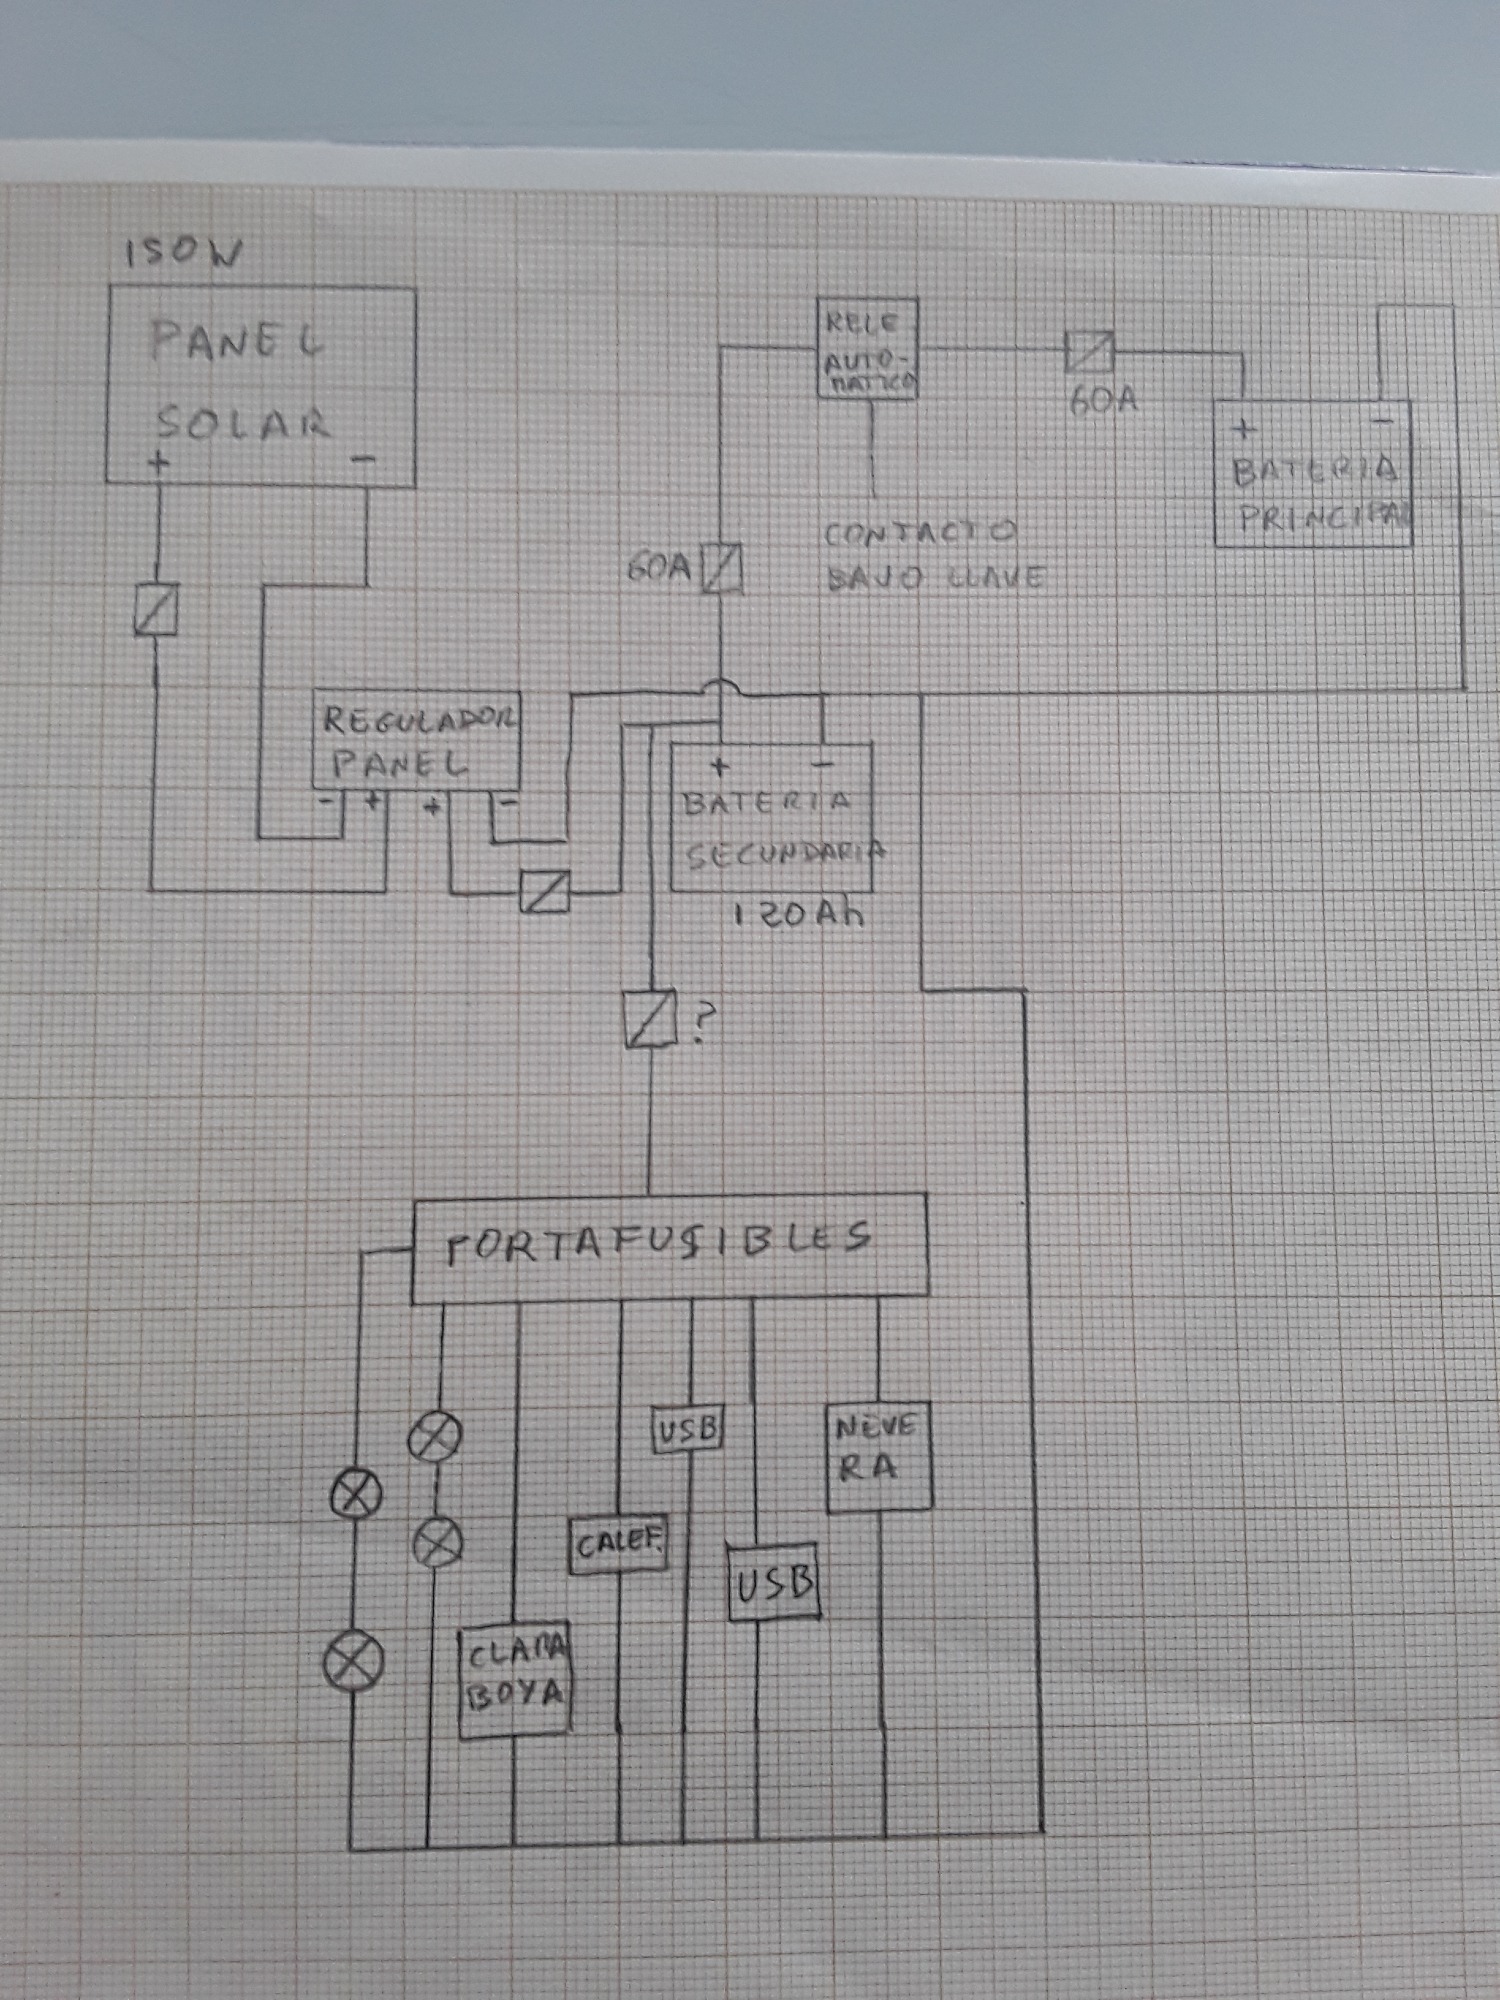 150W
PANEL
SOLAR
+ -
RELE
AUTO-
MATICO
60A
+ -
BATERIA
PRINCIPAL
CONTACTO
BAJO LLAVE
60A
REGULADOR
PANEL
- + + -
+ -
BATERIA
SECUNDARIA
120Ah
?
PORTAFUSIBLES
USB
NEVE
RA
CALEF.
USB
CLARA
BOYA